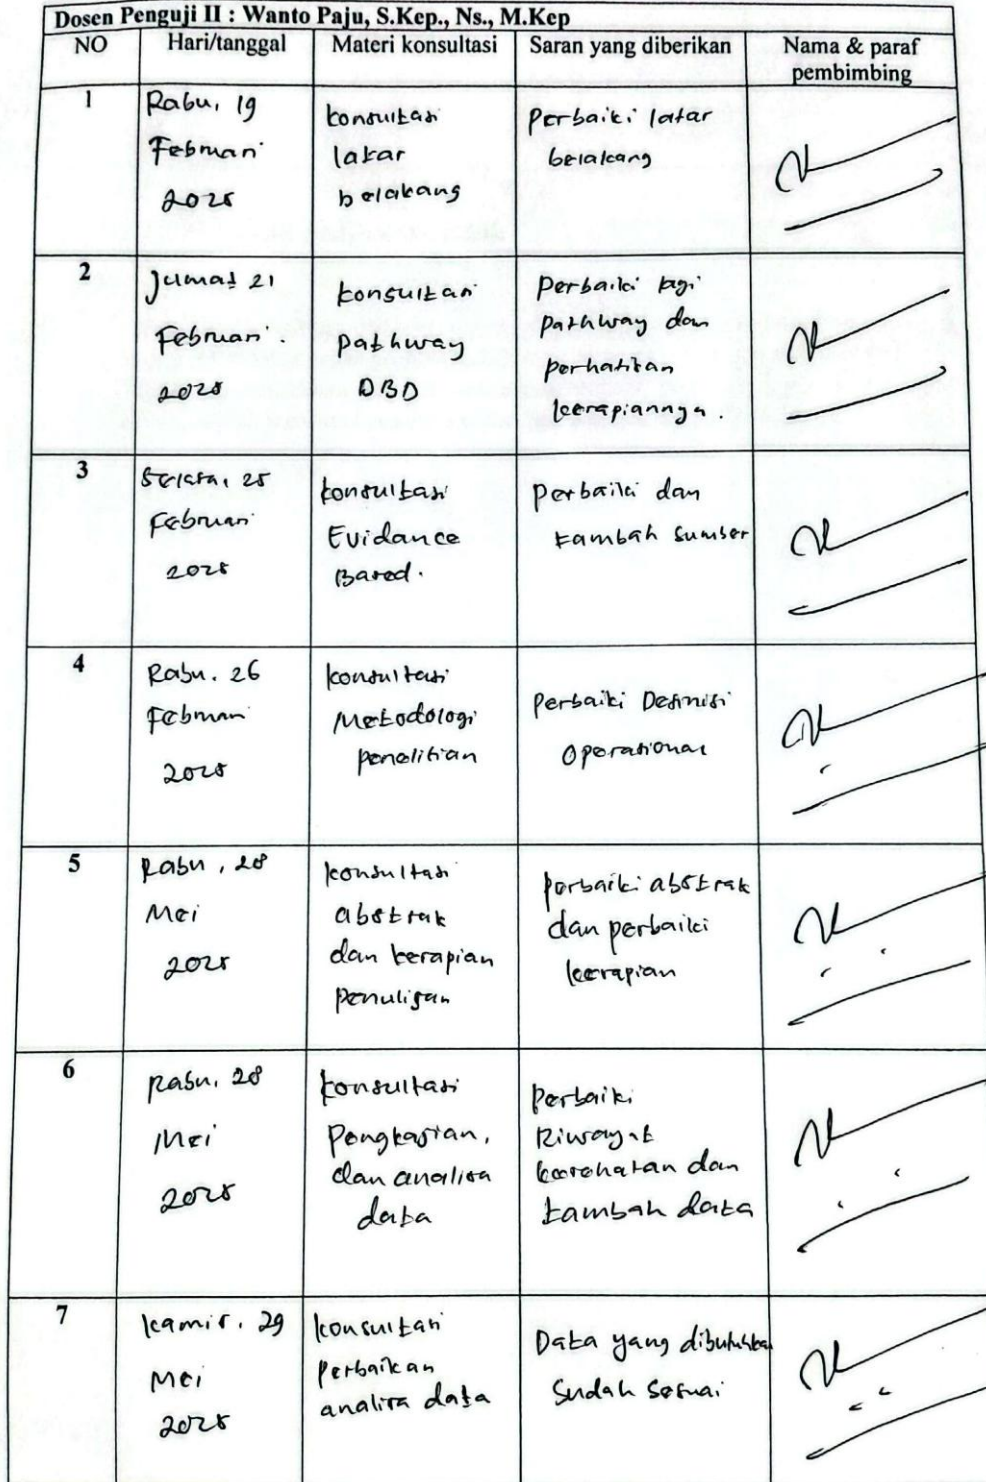 Dosen Penguji II : Wanto Paju, S.Kep., Ns., M.Kep
NO Hari/tanggal Materi konsultasi Saran yang diberikan Nama & paraf
pembimbing
1
Rabu, 19
Februari
2025
konsultasi
latar
belakang
Perbaiki latar
belakang
2
Jumat 21
Februari.
2025
konsultasi
pathway
DBD
Perbaiki lagi
pathway dan
perhatikan
kerapiannya.
3
Selasa, 25
Februari
2025
konsultasi
Evidance
Based.
Perbaiki dan
tambah sumber
4
Rabu. 26
Februari
2025
konsultasi
Metodologi
penelitian
Perbaiki Definisi
Operasional
5
Rabu, 28
Mei
2025
konsultasi
abstrak
dan kerapian
penulisan
perbaiki abstrak
dan perbaiki
kerapian
6
Rabu, 28
Mei
2025
konsultasi
Pengkajian,
dan analisa
data
Perbaiki
Riwayat
kesehatan dan
tambah data
7
kamis, 29
Mei
2025
konsultasi
perbaikan
analisa data
Data yang dibutuhkan
Sudah Sesuai